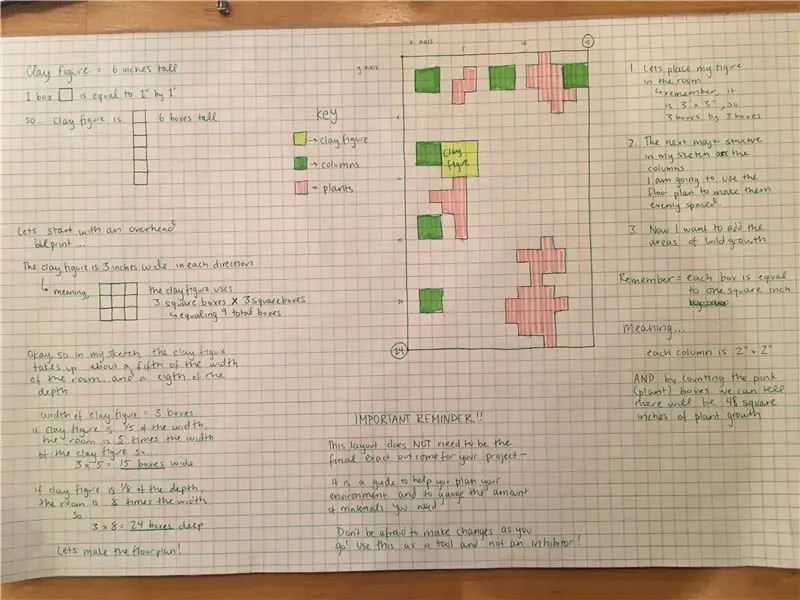 Clay Figure = 6 inches tall
1 box is equal to 1" by 1"
so clay figure is 6 boxes tall
key
→ clay figure
→ columns
→ plants
Lets start with an overhead
The clay figure is 3 inches wide in each direction
meaning, the clay figure uses
3 square boxes x 3 square boxes
equaling 9 total boxes
Okay, so in my sketch, the clay figure
takes up about a fifth of the width
of the room and a eigth of the
depth.
Width of clay figure = 3 boxes
if clay figure is 1/5 of the width,
the room is 5 times the width
of the clay figure so...
3 x 5 = 15 boxes wide
if clay figure is 1/8 of the depth,
the room is 8 times the width
So
3 x 8 = 24 boxes deep
Lets make the floorplan!
x axis
y axis
5
15
24
Clay
figure
IMPORTANT REMINDER!!
This layout does NOT need to be the
final exact outcome for your project -
It is a guide to help you plan your
environment and to gauge the amount
of materials you need
Don't be afraid to make changes as you
go! Use this as a tool and not an inhibitor!
1. Lets place my figure
in the room
remember, it
is 3" x 3", so
3 boxes by 3 boxes
2. The next major structure
in my sketch are the
columns
I am going to use the
floor plan to make them
evenly spaced
3. Now I want to add the
areas of wild growth
Remember = each box is equal
to one square inch
Meaning...
each column is 2" x 2"
AND by counting the pink
(plant) boxes we can tell
there will be 48 square
inches of plant growth